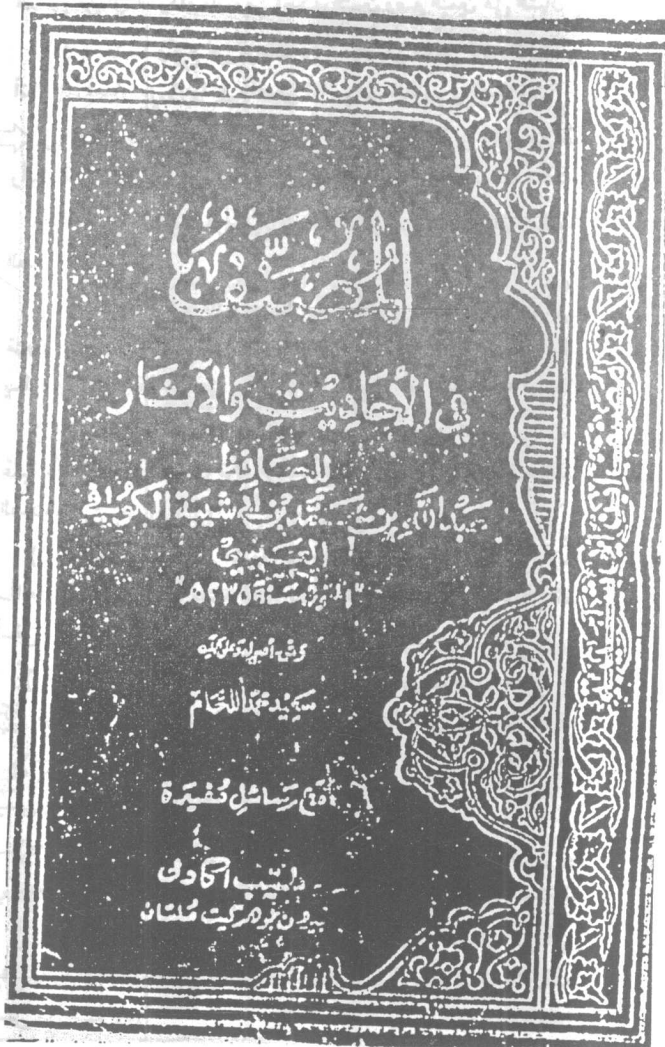 المُصَنَّفُ
في الأحَادِيْثِ وَالآثَار
للحَافِظ
عبد الله بن محمّد بن أبي شيبة الكوفي
العبسي
المتوفى سنة ٢٣٥هـ
سعيد محمد اللحّام
مع رسائل مُفيدة
طيّب اكادمى
بيرون بوهڑ گيٹ مُلتان
مصنف ابن أبي شيبة